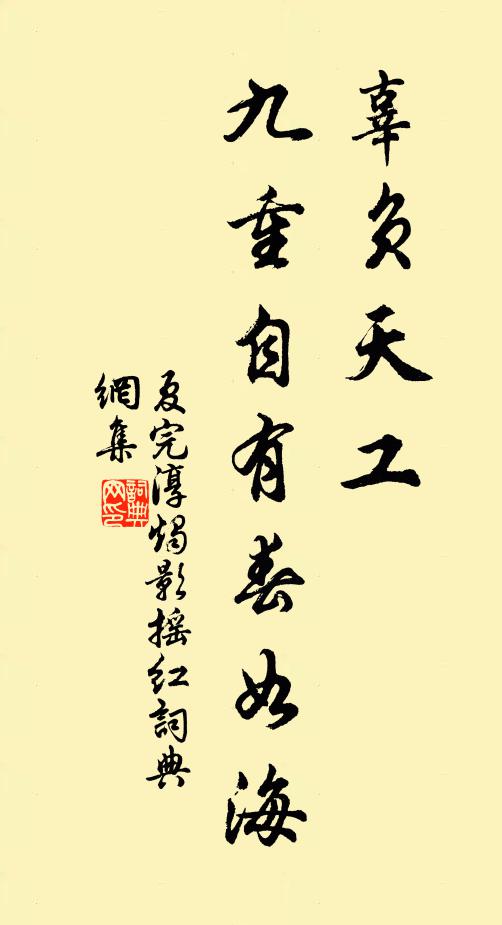 辜负天工
九重自有春如海
夏完淳烛影摇红詞典
網集
詞典
网印